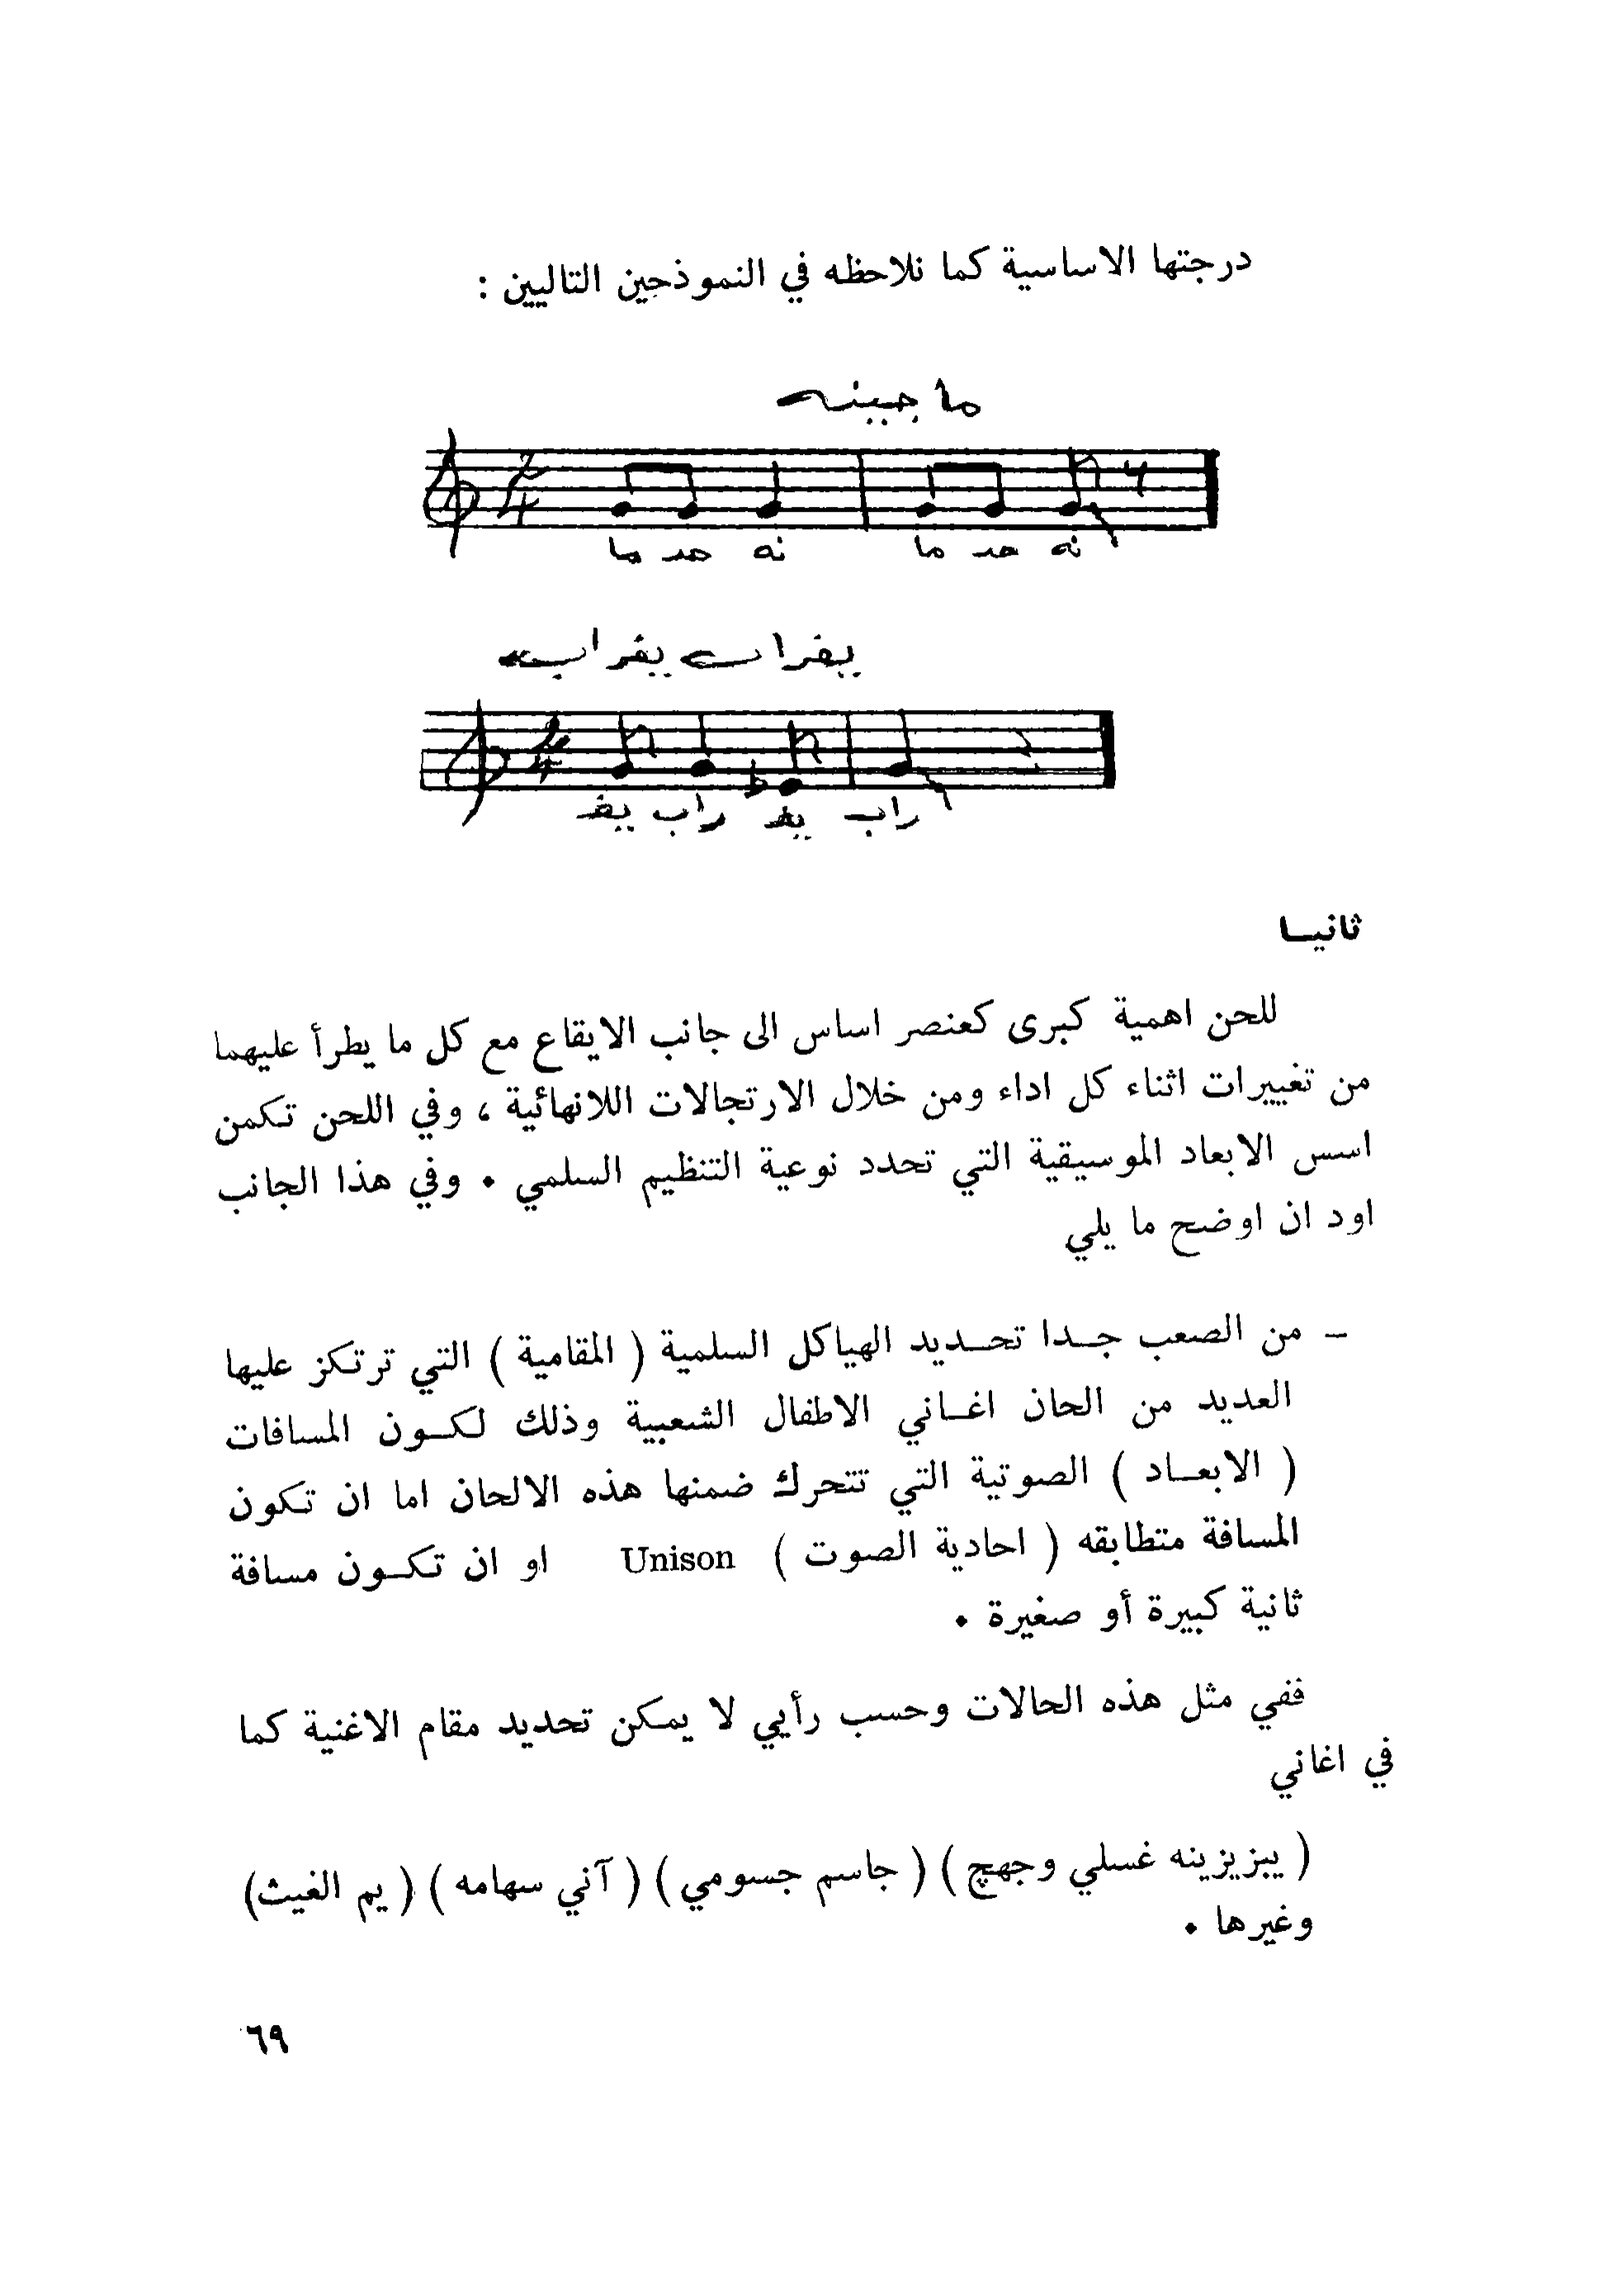 درجتها الاساسية كما نلاحظه في النموذجين التاليين :
ما جينه
ما جد نه ما جد نه
يغراب يغراب
يغـ راب يغـ راب
ثانيـا
للحن اهمية كبرى كعنصر اساس الى جانب الايقاع مع كل ما يطرأ عليهما
من تغييرات اثناء كل اداء ومن خلال الارتجالات اللانهائية ، وفي اللحن تكمن
اسس الابعاد الموسيقية التي تحدد نوعية التنظيم السلمي • وفي هذا الجانب
اود ان اوضح ما يلي
– من الصعب جـدا تحـديد الهياكل السلمية ( المقامية ) التي ترتكز عليها
العديد من الحان اغـاني الاطفال الشعبية وذلك لكـون المسافات
( الابعـاد ) الصوتية التي تتحرك ضمنها هذه الالحان اما ان تكون
المسافة متطابقه ( احادية الصوت ) Unison او ان تكـون مسافة
ثانية كبيرة أو صغيرة •
ففي مثل هذه الحالات وحسب رأيي لا يمكن تحديد مقام الاغنية كما
في اغاني
( يبزيزينه غسلي وجهچ ) ( جاسم جسومي ) ( آني سهامه ) ( يم الغيث )
وغيرها •
٦٩